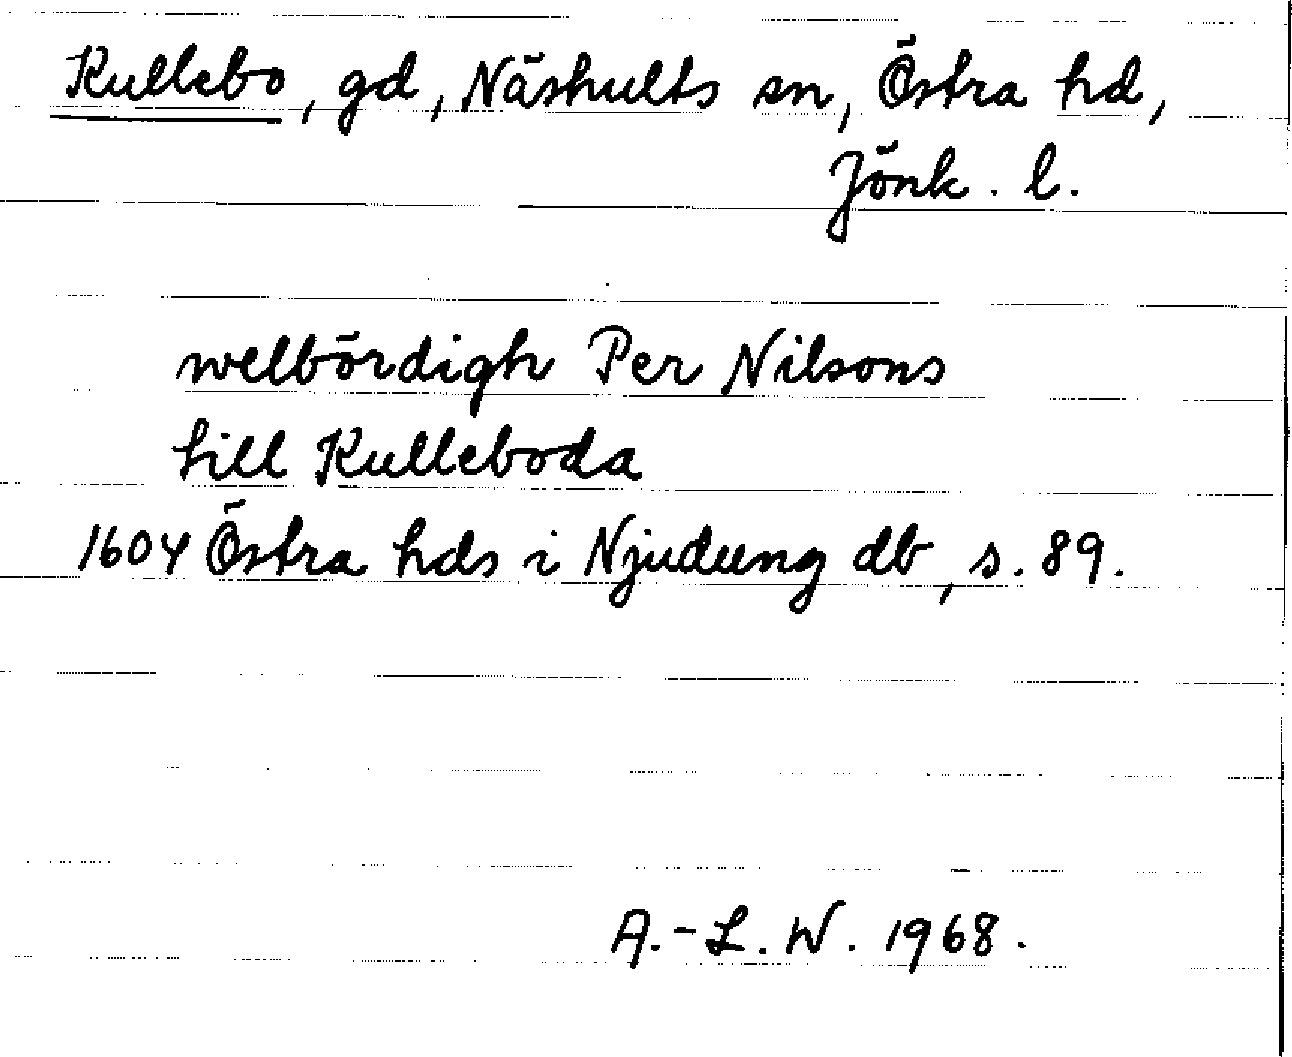 Kullebo, gd, Näshults sn, Östra hd,
Jönk. l.
welbördigh Per Nilsons
till Kulleboda
1604 Östra hds i Njudung db, s. 89.
A.-L. W. 1968.